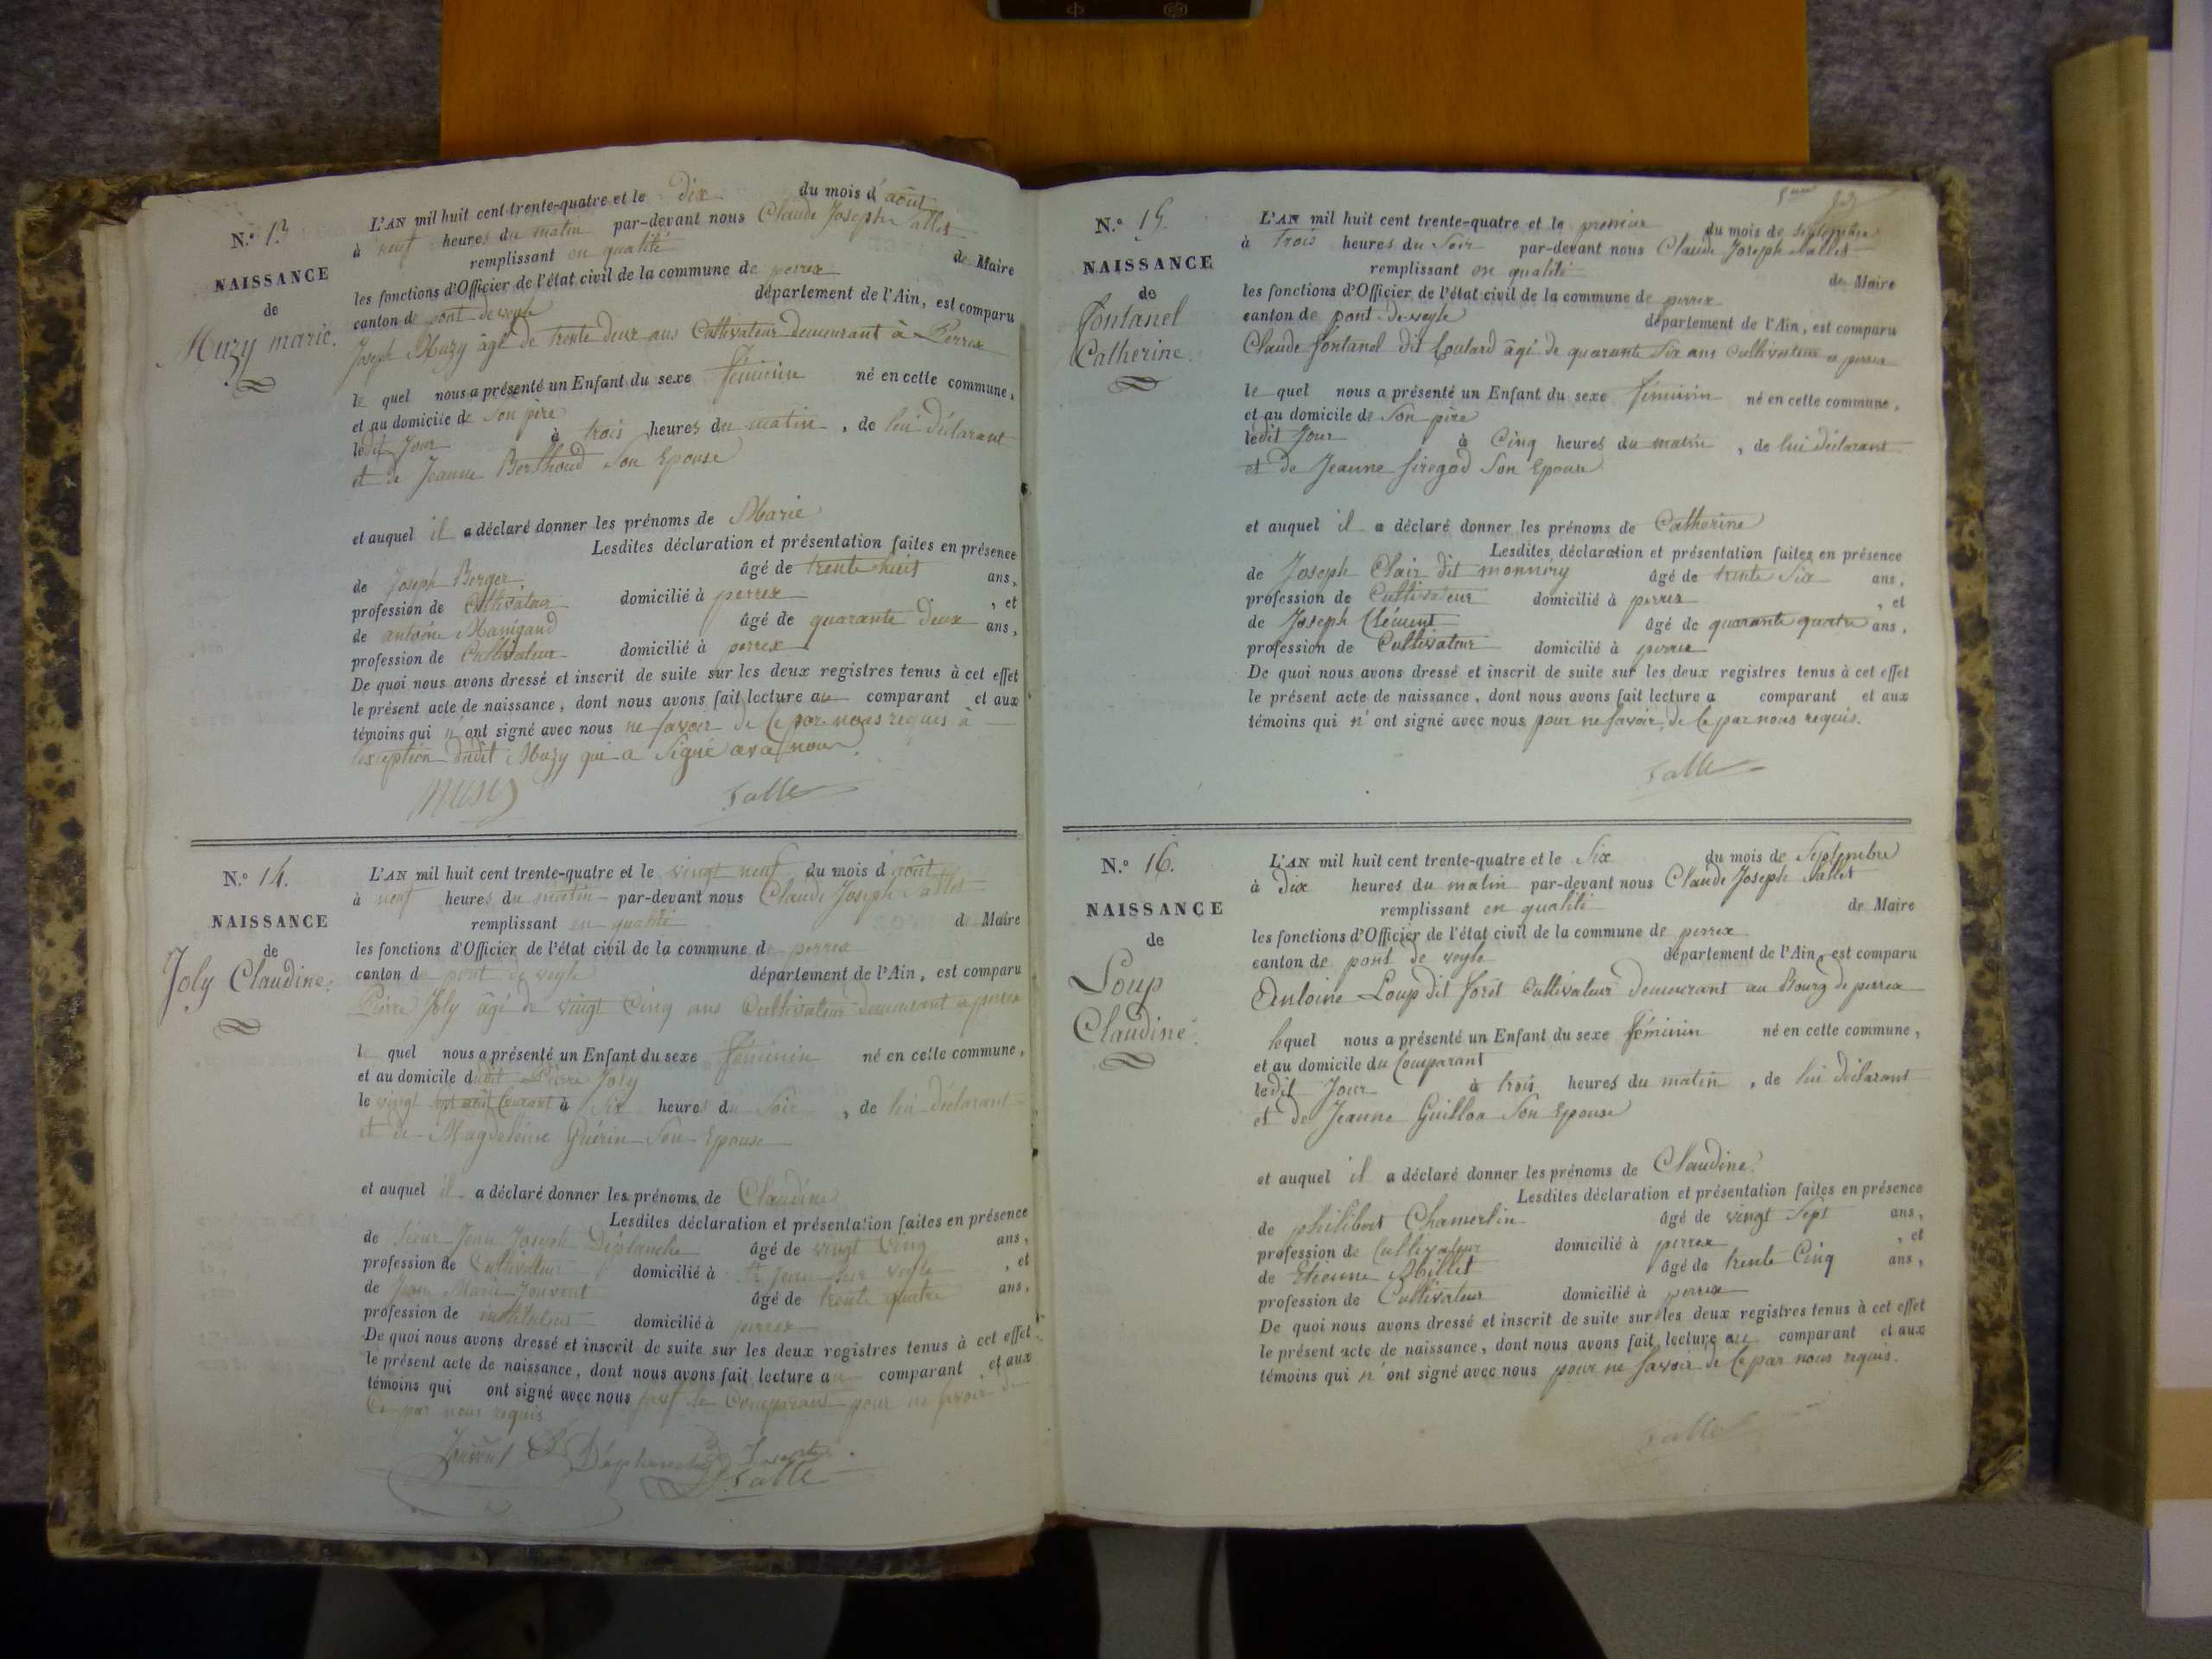 N.° 13
NAISSANCE
de
Muzy marie.
L'AN mil huit cent trente-quatre et le dix du mois d'août
à neuf heures du matin par-devant nous Claude Joseph Sallet
remplissant en qualité de Maire
les fonctions d'Officier de l'état civil de la commune de perrex
canton de pont de veyle département de l'Ain, est comparu
Joseph Muzy âgé de trente deux ans Cultivateur demeurant à Perrex
le quel nous a présenté un Enfant du sexe féminin né en cette commune,
et au domicile de Son père
ledit Jour à trois heures du matin, de lui déclarant
et de Jeanne Berthoud Son Epouse
et auquel il a déclaré donner les prénoms de Marie
Lesdites déclaration et présentation faites en présence
de Joseph Berger âgé de trente huit ans,
profession de Cultivateur domicilié à perrex, et
de antoine Manigand âgé de quarante deux ans,
profession de Cultivateur domicilié à perrex
De quoi nous avons dressé et inscrit de suite sur les deux registres tenus à cet effet
le présent acte de naissance, dont nous avons fait lecture au comparant et aux
témoins qui n'ont signé avec nous ne savoir de Ce par nous requis à
l'exception dudit Muzy qui a Signé avec nous.
Muzy Sallet
N.° 14.
NAISSANCE
de
Joly Claudine.
L'AN mil huit cent trente-quatre et le vingt neuf du mois d'août
à neuf heures du matin par-devant nous Claude Joseph Sallet
remplissant en qualité de Maire
les fonctions d'Officier de l'état civil de la commune de perrex
canton de pont de veyle département de l'Ain, est comparu
Pierre Joly âgé de vingt Cinq ans Cultivateur demeurant a perrex
le quel nous a présenté un Enfant du sexe féminin né en cette commune,
et au domicile dudit Pierre Joly
le vingt sept août Courant à Six heures du Soir, de lui déclarant
et de Magdeleine Guérin Son Epouse
et auquel il a déclaré donner les prénoms de Claudine
Lesdites déclaration et présentation faites en présence
de Sieur Jean Joseph Déplanche âgé de vingt Cinq ans,
profession de Cultivateur domicilié à St Jean sur veyle, et
de Jean Marie Jouvent âgé de trente quatre ans,
profession de instituteur domicilié à perrex
De quoi nous avons dressé et inscrit de suite sur les deux registres tenus à cet effet
le présent acte de naissance, dont nous avons fait lecture au comparant et aux
témoins qui ont signé avec nous sauf le Comparant pour ne savoir de
Ce par nous requis
Jouvent Déplanche Sallet
N.° 15.
NAISSANCE
de
Fontanel
Catherine.
L'AN mil huit cent trente-quatre et le premier du mois de septembre
à trois heures du Soir par-devant nous Claude Joseph Sallet
remplissant en qualité de Maire
les fonctions d'Officier de l'état civil de la commune de perrex
canton de pont de veyle département de l'Ain, est comparu
Claude fontanel dit Coulard âgé de quarante Six ans Cultivateur a perrex
le quel nous a présenté un Enfant du sexe féminin né en cette commune,
et au domicile de Son père
ledit Jour à Cinq heures du matin, de lui déclarant
et de Jeanne Son Epouse
et auquel il a déclaré donner les prénoms de Catherine
Lesdites déclaration et présentation faites en présence
de Joseph Clair dit monnery âgé de trente Six ans,
profession de Cultivateur domicilié à perrex, et
de Joseph Clément âgé de quarante quatre ans,
profession de Cultivateur domicilié à perrex
De quoi nous avons dressé et inscrit de suite sur les deux registres tenus à cet effet
le présent acte de naissance, dont nous avons fait lecture a comparant et aux
témoins qui n'ont signé avec nous pour ne savoir, de Ce par nous requis.
Sallet
N.° 16.
NAISSANCE
de
Loup
Claudine.
L'AN mil huit cent trente-quatre et le Six du mois de Septembre
à Dix heures du matin par-devant nous Claude Joseph Sallet
remplissant en qualité de Maire
les fonctions d'Officier de l'état civil de la commune de perrex
canton de pont de veyle département de l'Ain, est comparu
Antoine Loup dit forêt Cultivateur Demeurant au Bourg de perrex
lequel nous a présenté un Enfant du sexe féminin né en cette commune,
et au domicile du Comparant
ledit Jour à trois heures du matin, de lui déclarant
et de Jeanne Guilloa Son Epouse
et auquel il a déclaré donner les prénoms de Claudine
Lesdites déclaration et présentation faites en présence
de philibert Chamerlin âgé de vingt Sept ans,
profession de Cultivateur domicilié à perrex, et
de Etienne Millet âgé de trente Cinq ans,
profession de Cultivateur domicilié à perrex
De quoi nous avons dressé et inscrit de suite sur les deux registres tenus à cet effet
le présent acte de naissance, dont nous avons fait lecture au comparant et aux
témoins qui n'ont signé avec nous pour ne savoir de Ce par nous requis.
Sallet